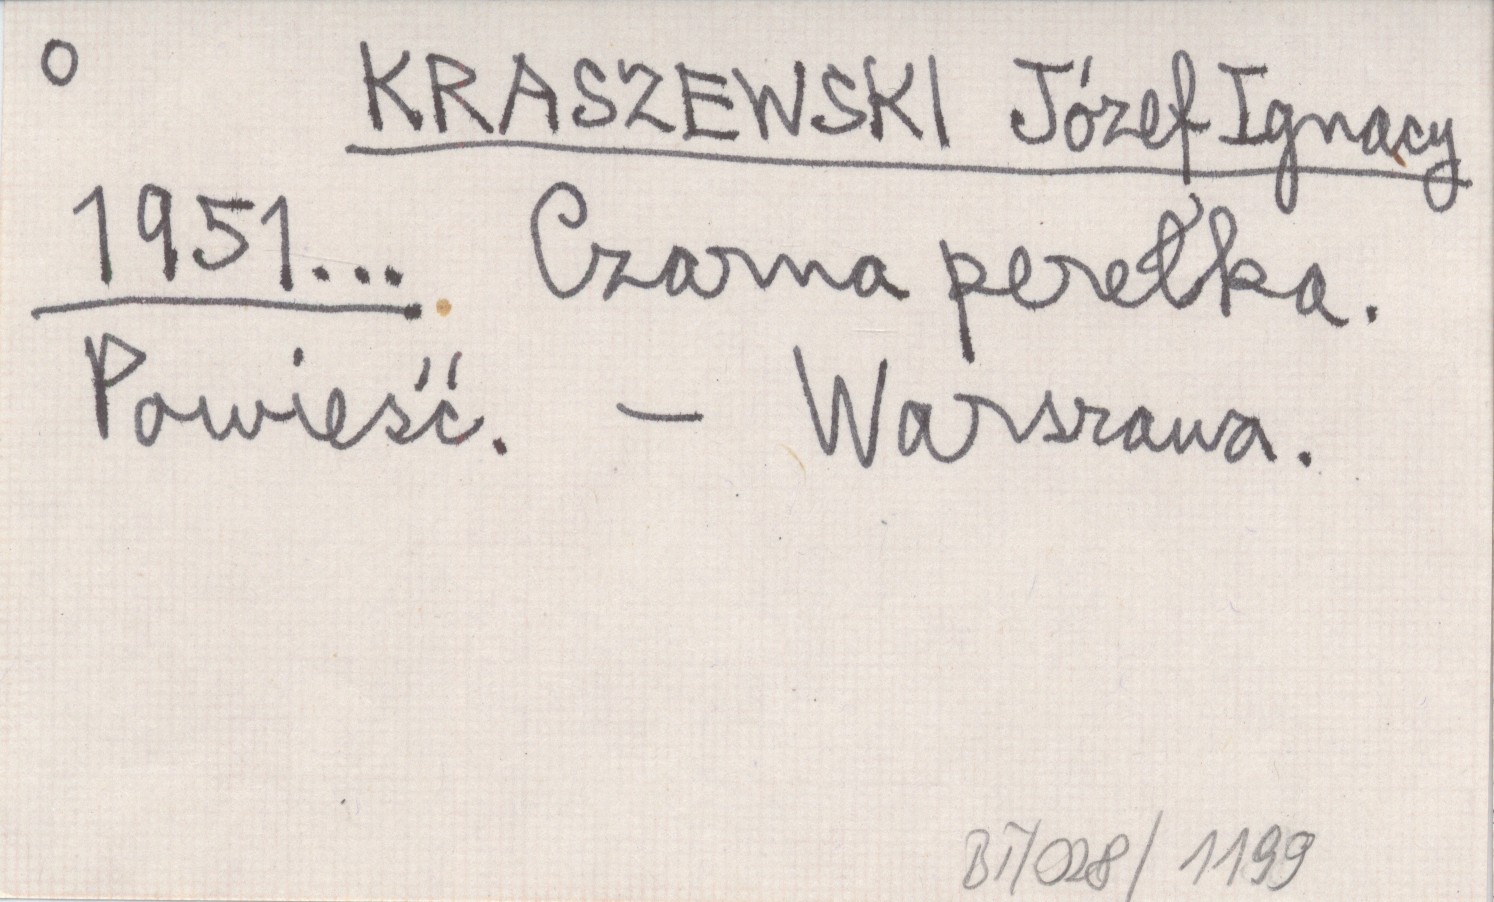 o KRASZEWSKI Józef Ignacy
1951... Czarna perełka.
Powieść. — Warszawa.
BI/028/1199